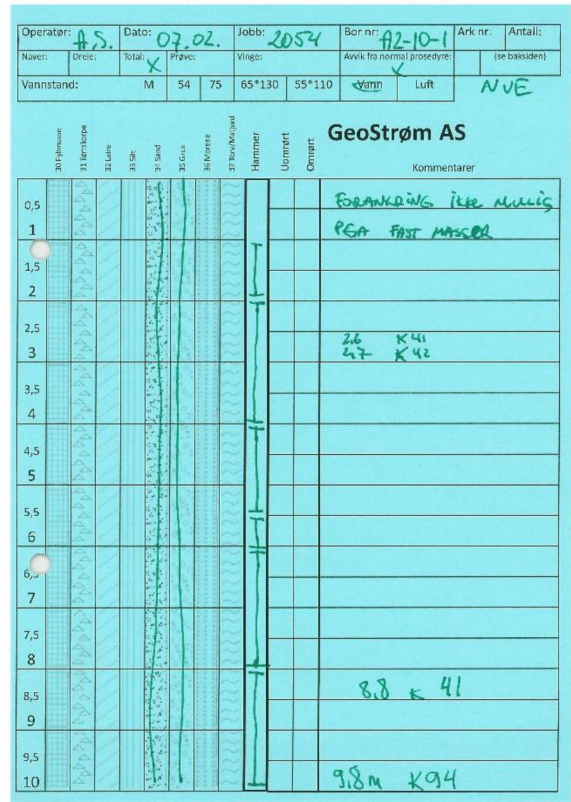 Operatør: A.S. Dato: 07.02. Jobb: 2054 Bor nr: A2-10-1 Ark nr: Antall:
Naver: Dreie: Total: X Prøve: Vinge: Avvik fra normal prosedyre: X (se baksiden)
Vannstand: M 54 75 65*130 55*110 Vann Luft NVE
GeoStrøm AS
30 Fyllmasse 31 Tørrskorpe 32 Leire 33 Silt 34 Sand 35 Grus 36 Morene 37 Torv/Matjord Hammer Uomrørt Omrørt Kommentarer
0,5 FORANKRING ikke MULIG
1 PGA FAST MASSER
1,5
2
2,5
2,6 K41
3 2,7 K42
3,5
4
4,5
5
5,5
6
6,5
7
7,5
8
8,5 8,8 K 41
9
9,5
10 9,8m K94